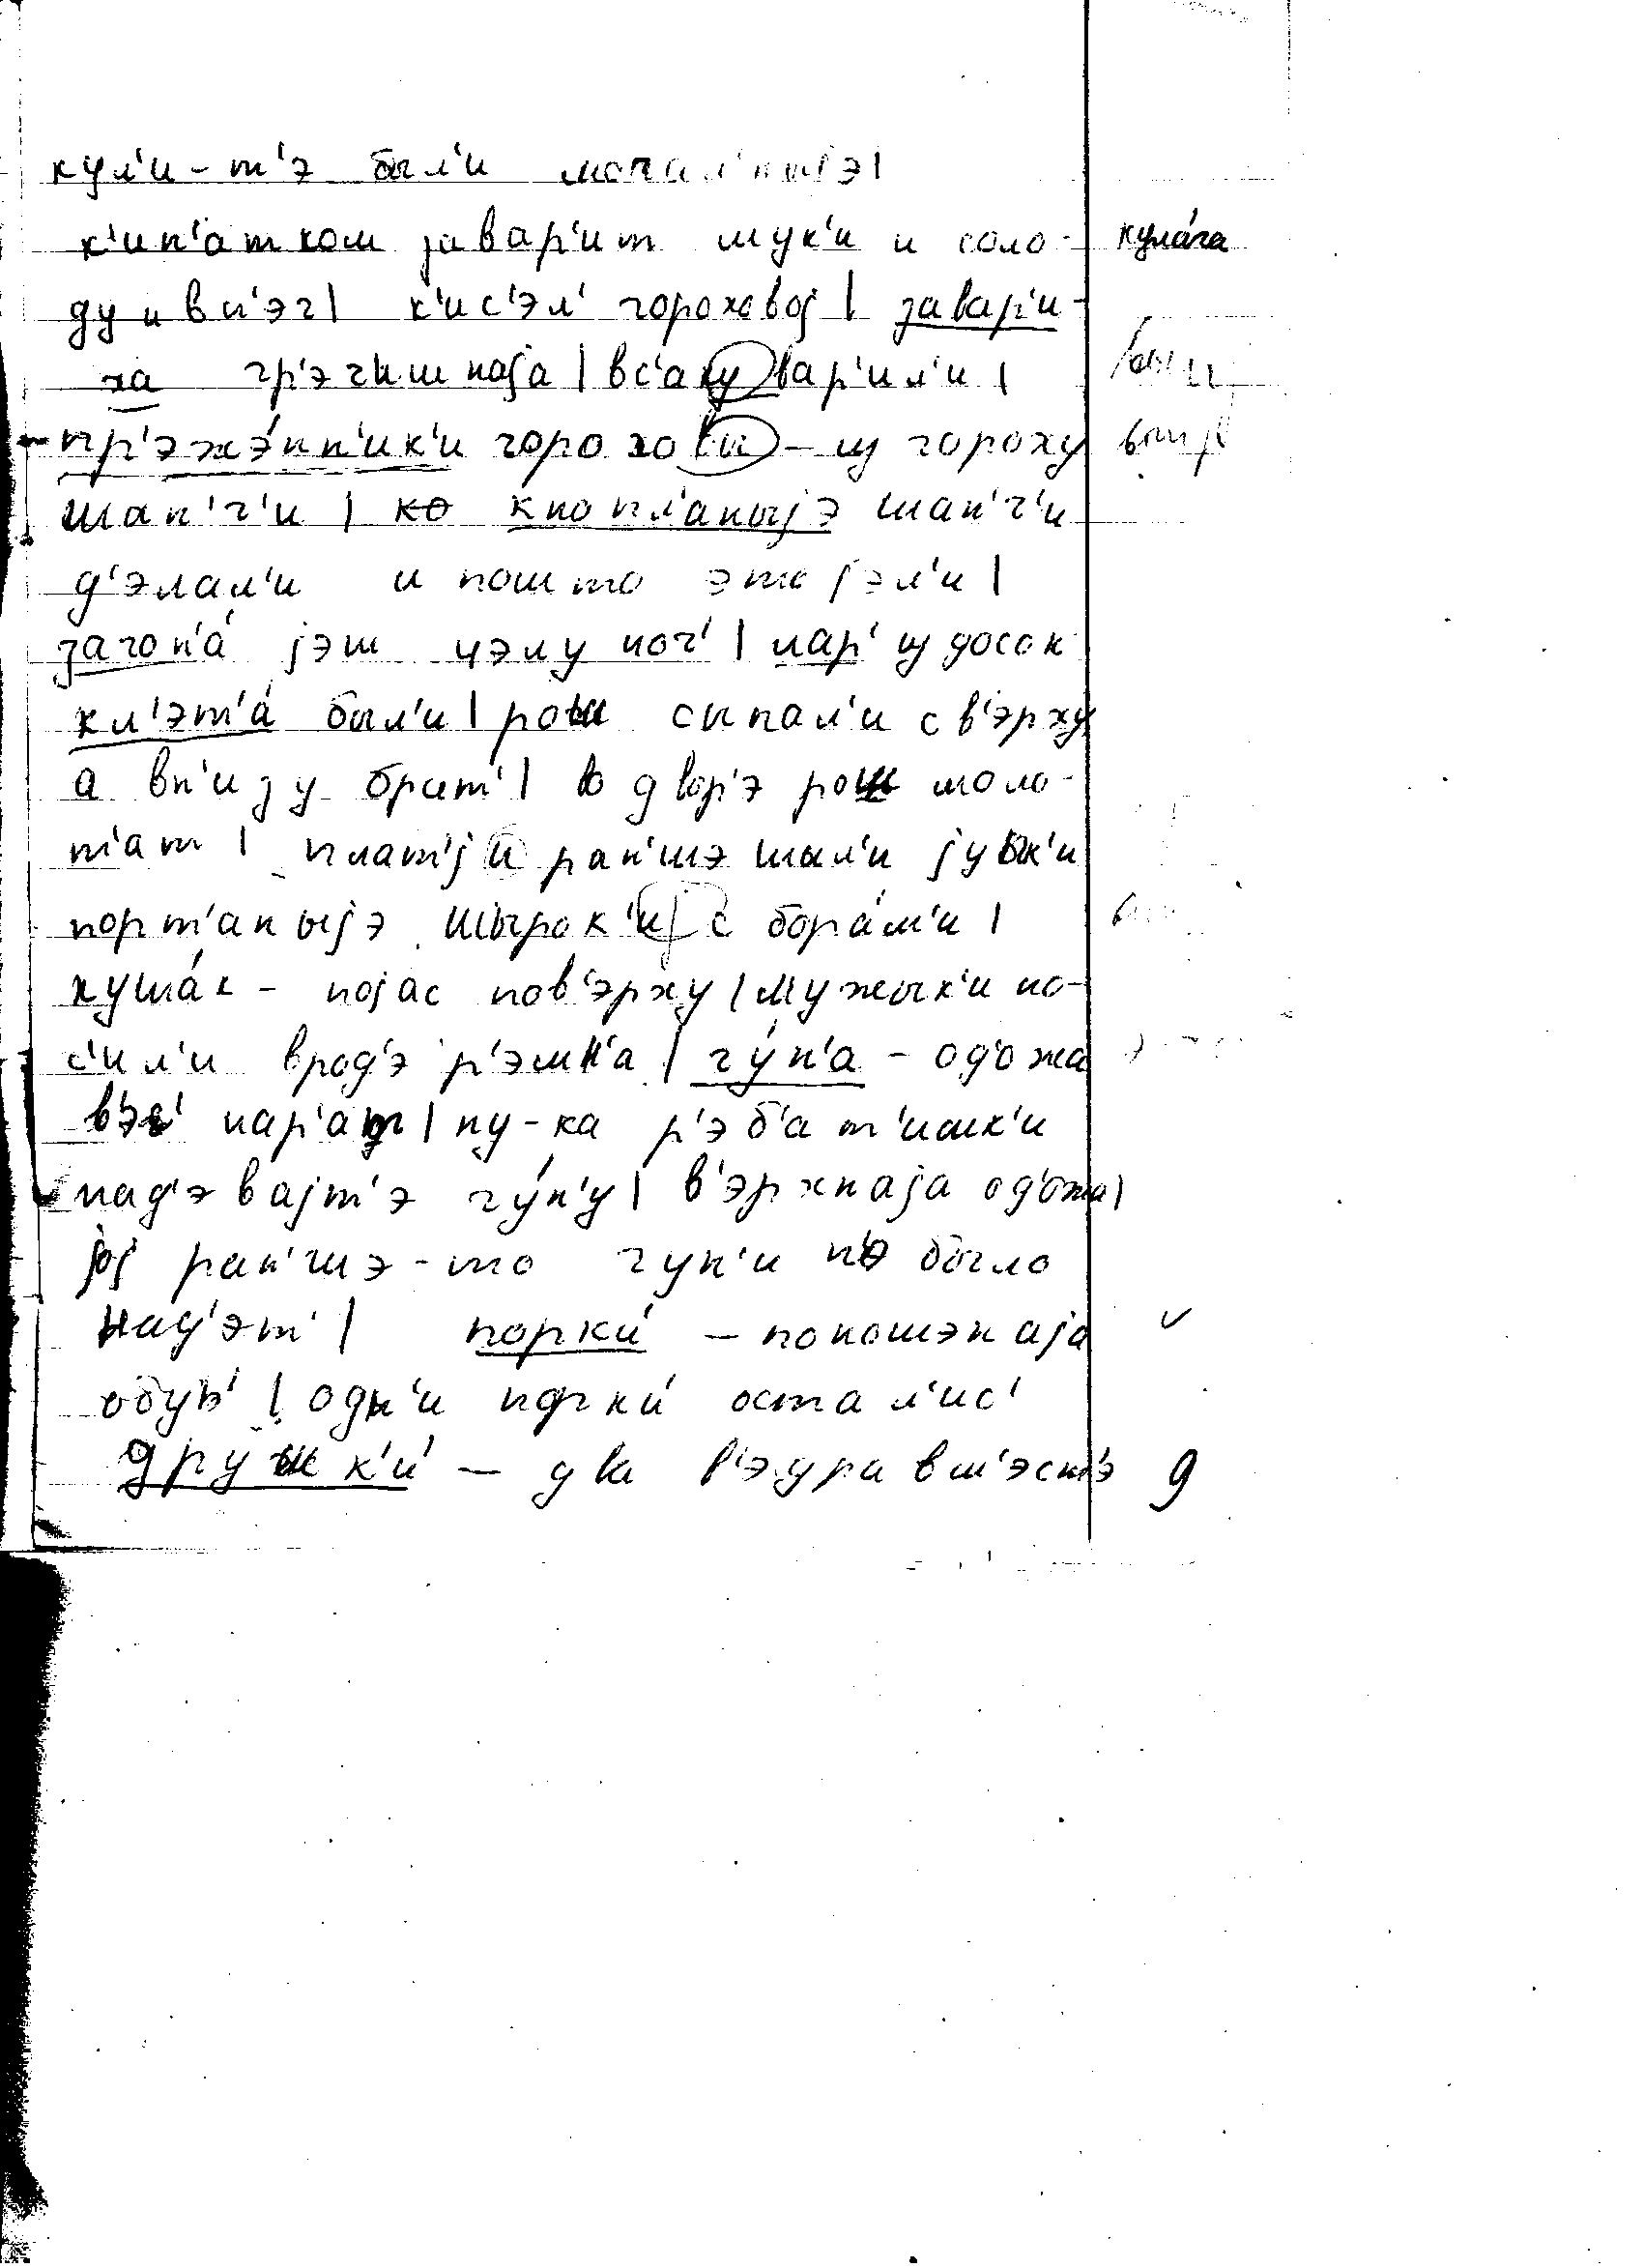 кул'и-т'э был'и мочал'ныjэ|
к'ип'атком завар'ит мук'и и соло- кула́га
ду и в п'эч| к'ис'эл' гороховоj | завар'и-
ха гр'эчишнаjа | вс'аку вар'ил'и |
пр'эжэ́нн'ик'и горохо - из гороху
шан'г'и | ко кнопл'аныjэ шан'г'и
д'элал'и и пошто это jэл'и |
загон'а́ jэш цэлу ноч' | лар' из досок
кл'эт'а́ был'и | рош сыпал'и св'эрху
а вн'изу брат' | во двор'э рош моло-
т'ат | плат'jи ран'шэ шыл'и jупк'и
порт'аныjэ шырок'иj с бора́м'и |
куша́к - поjас пов'эрху | мужык'и но-
с'ил'и врод'э р'эмн'а | гу́н'а - од'ожа
в'эс' нар'ат | ну-ка р'эб'ат'ишк'и
над'эваjт'э гу́н'у | в'эрхнаjа од'ожа|
jоj ран'шэ-то гун'и н'э было
над'эт' | поркн'и́ - поношэнаjа
обув' | одн'и остал'ис'
дружк'и́ - два в'эдра вм'эст'э д